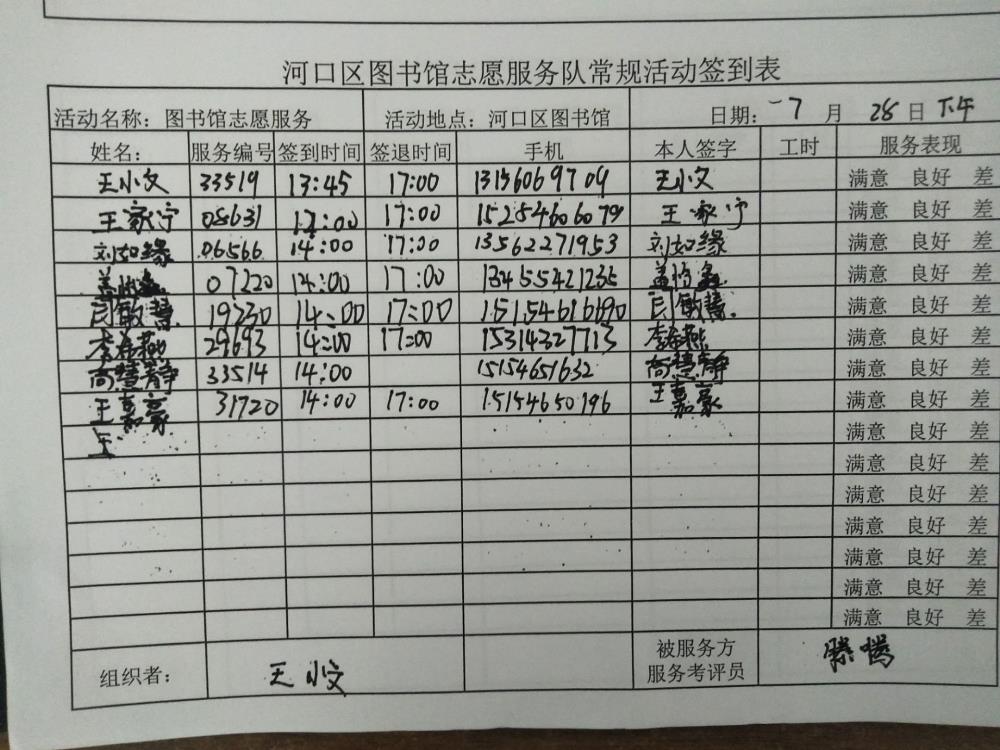 河口区图书馆志愿服务队常规活动签到表
活动名称：图书馆志愿服务 活动地点：河口区图书馆 日期： 7 月 28 日 下午
姓名： 服务编号 签到时间 签退时间 手机 本人签字 工时 服务表现
王小文 33519 13:45 17:00 王小文 满意 良好 差
王家宁 08631 17:00 15254606079 王家宁 满意 良好 差
刘如缘 06566 14:00 17:00 13562271953 刘如缘 满意 良好 差
07220 14:00 17:00 满意 良好 差
19230 14:00 17:00 满意 良好 差
李春燕 29693 14:00 17:00 15314327713 李春燕 满意 良好 差
尚慧静 33514 14:00 15154651632 尚慧静 满意 良好 差
王嘉豪 31720 14:00 17:00 15154650196 王嘉豪 满意 良好 差
王 满意 良好 差
满意 良好 差
满意 良好 差
满意 良好 差
满意 良好 差
满意 良好 差
满意 良好 差
组织者： 王小文 被服务方
服务考评员